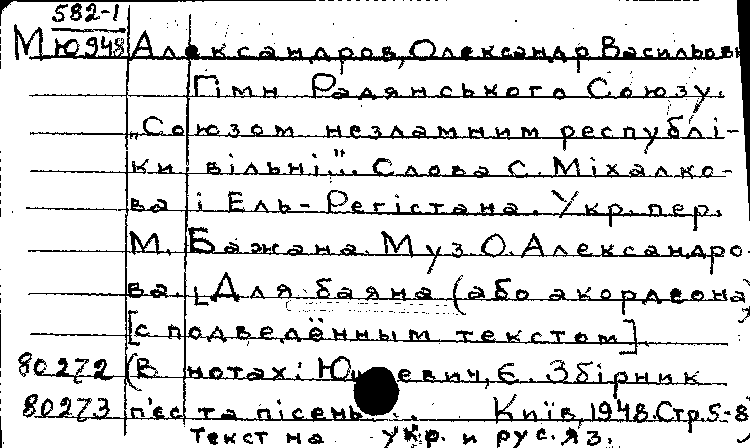 582-1
М ю948 Александров, Олександр Васильови
Гімн Радянського Союзу.
„Союзом незламним республі-
ки вільні"... Слова С. Міхалко-
ва і Ель-Регістана. Укр. пер.
М. Бажана. Муз. О. Александро-
ва. [Для баяна (або акордеона)
[с подведённым текстом].
80272 (В нотах: Є. Збірник
80273 п'єс та пісень... Київ, 1948. Стр. 5-8)
Текст на укр. и рус. яз.